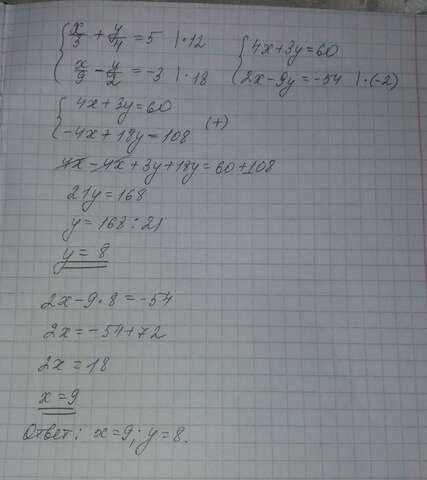 x/3 + y/4 = 5 | · 12
x/9 - y/2 = -3 | · 18
4x + 3y = 60
2x - 9y = -54 | · (-2)
4x + 3y = 60
-4x + 18y = 108 (+)
4x - 4x + 3y + 18y = 60 + 108
21y = 168
y = 168 : 21
y = 8
2x - 9 · 8 = -54
2x = -54 + 72
2x = 18
x = 9
Ответ: x = 9; y = 8.